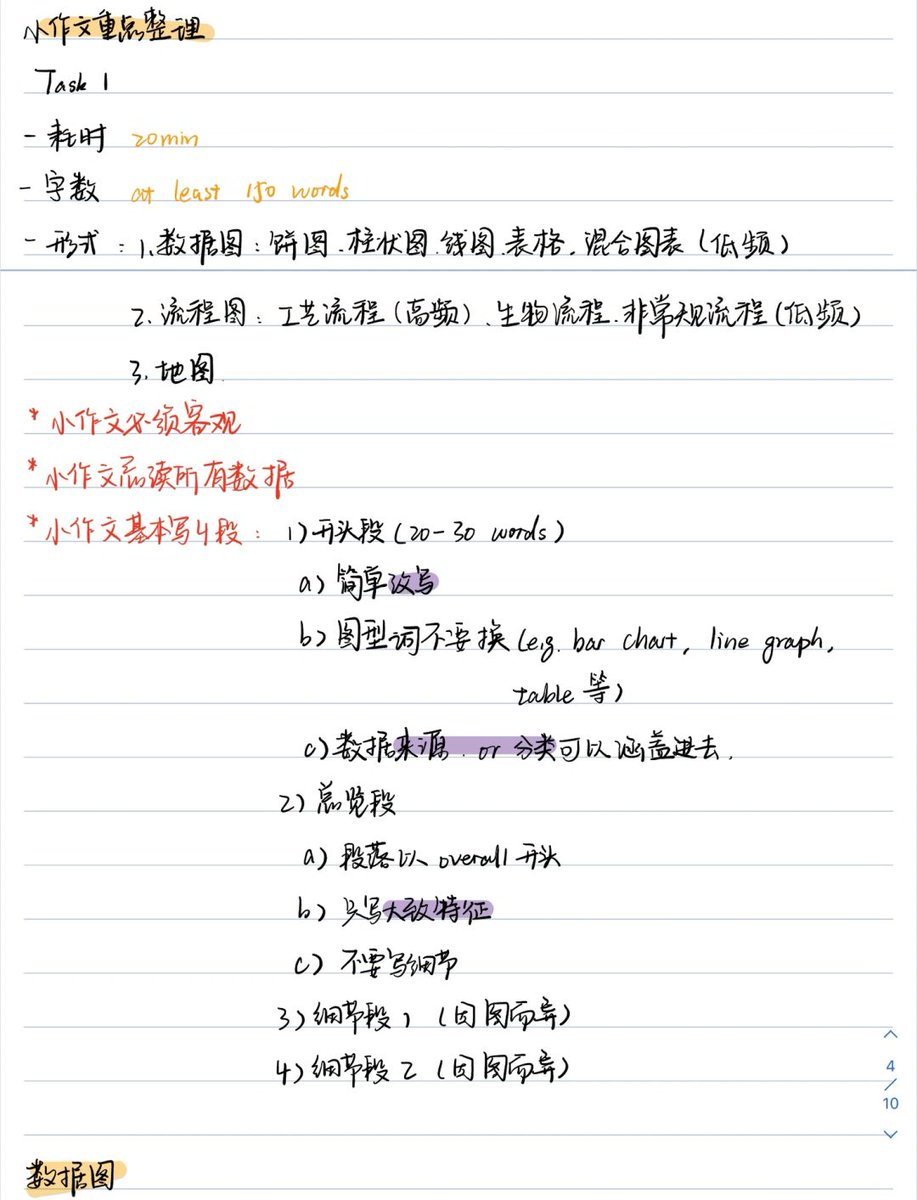 小作文重点整理
Task 1
- 耗时 20min
- 字数 at least 150 words
- 形式：1.数据图：饼图、柱状图、线图、表格、混合图表（低频）
2.流程图：工艺流程（高频）、生物流程、非常规流程（低频）
3.地图
* 小作文必须客观
* 小作文忌读所有数据
* 小作文基本写4段：1)开头段（20-30 words）
a）简单改写
b）图型词不要换（e.g. bar chart, line graph,
table 等）
c）数据来源 or 分类可以涵盖进去.
2）总览段
a）段落以 overall 开头
b）只写大致特征
c）不要写细节
3）细节段1（因图而异）
4）细节段2（因图而异）
4
/
10
数据图